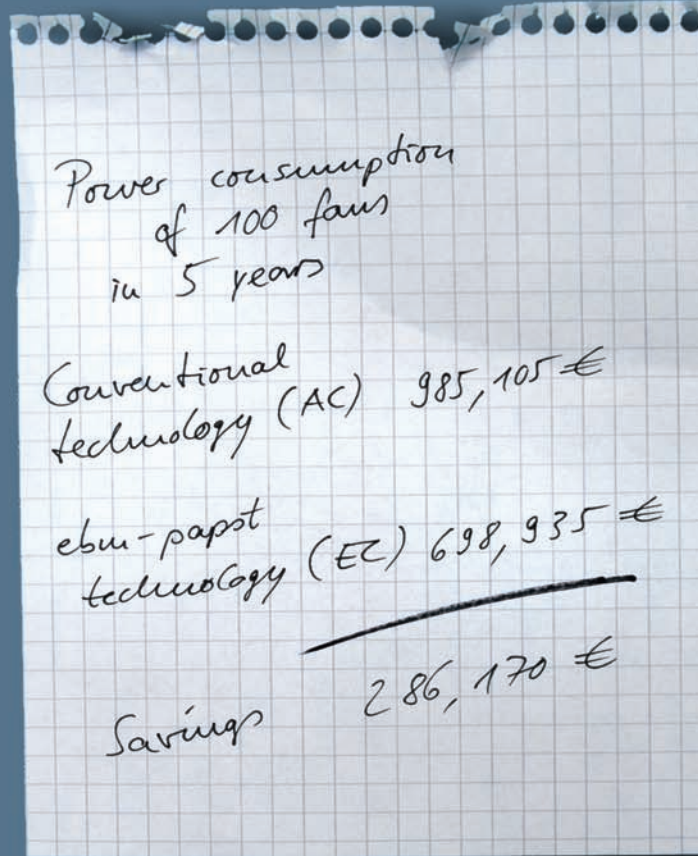 Power consumption
of 100 fans
in 5 years
Conventional
technology (AC) 985,105 €
ebm-papst
technology (EC) 698,935 €
Savings 286,170 €